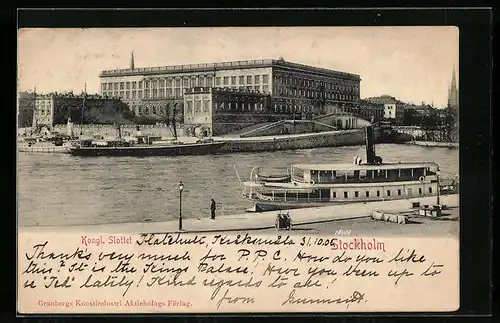 Kongl. Slottet
Stockholm
31/10.06
Thank's very much for P.P.C. How do you like
this? It is the Kings Palace. Have you been up to
"Ted" lately! Kind regards to all!
from
Granbergs Konstindustri Aktiebolags Förlag.